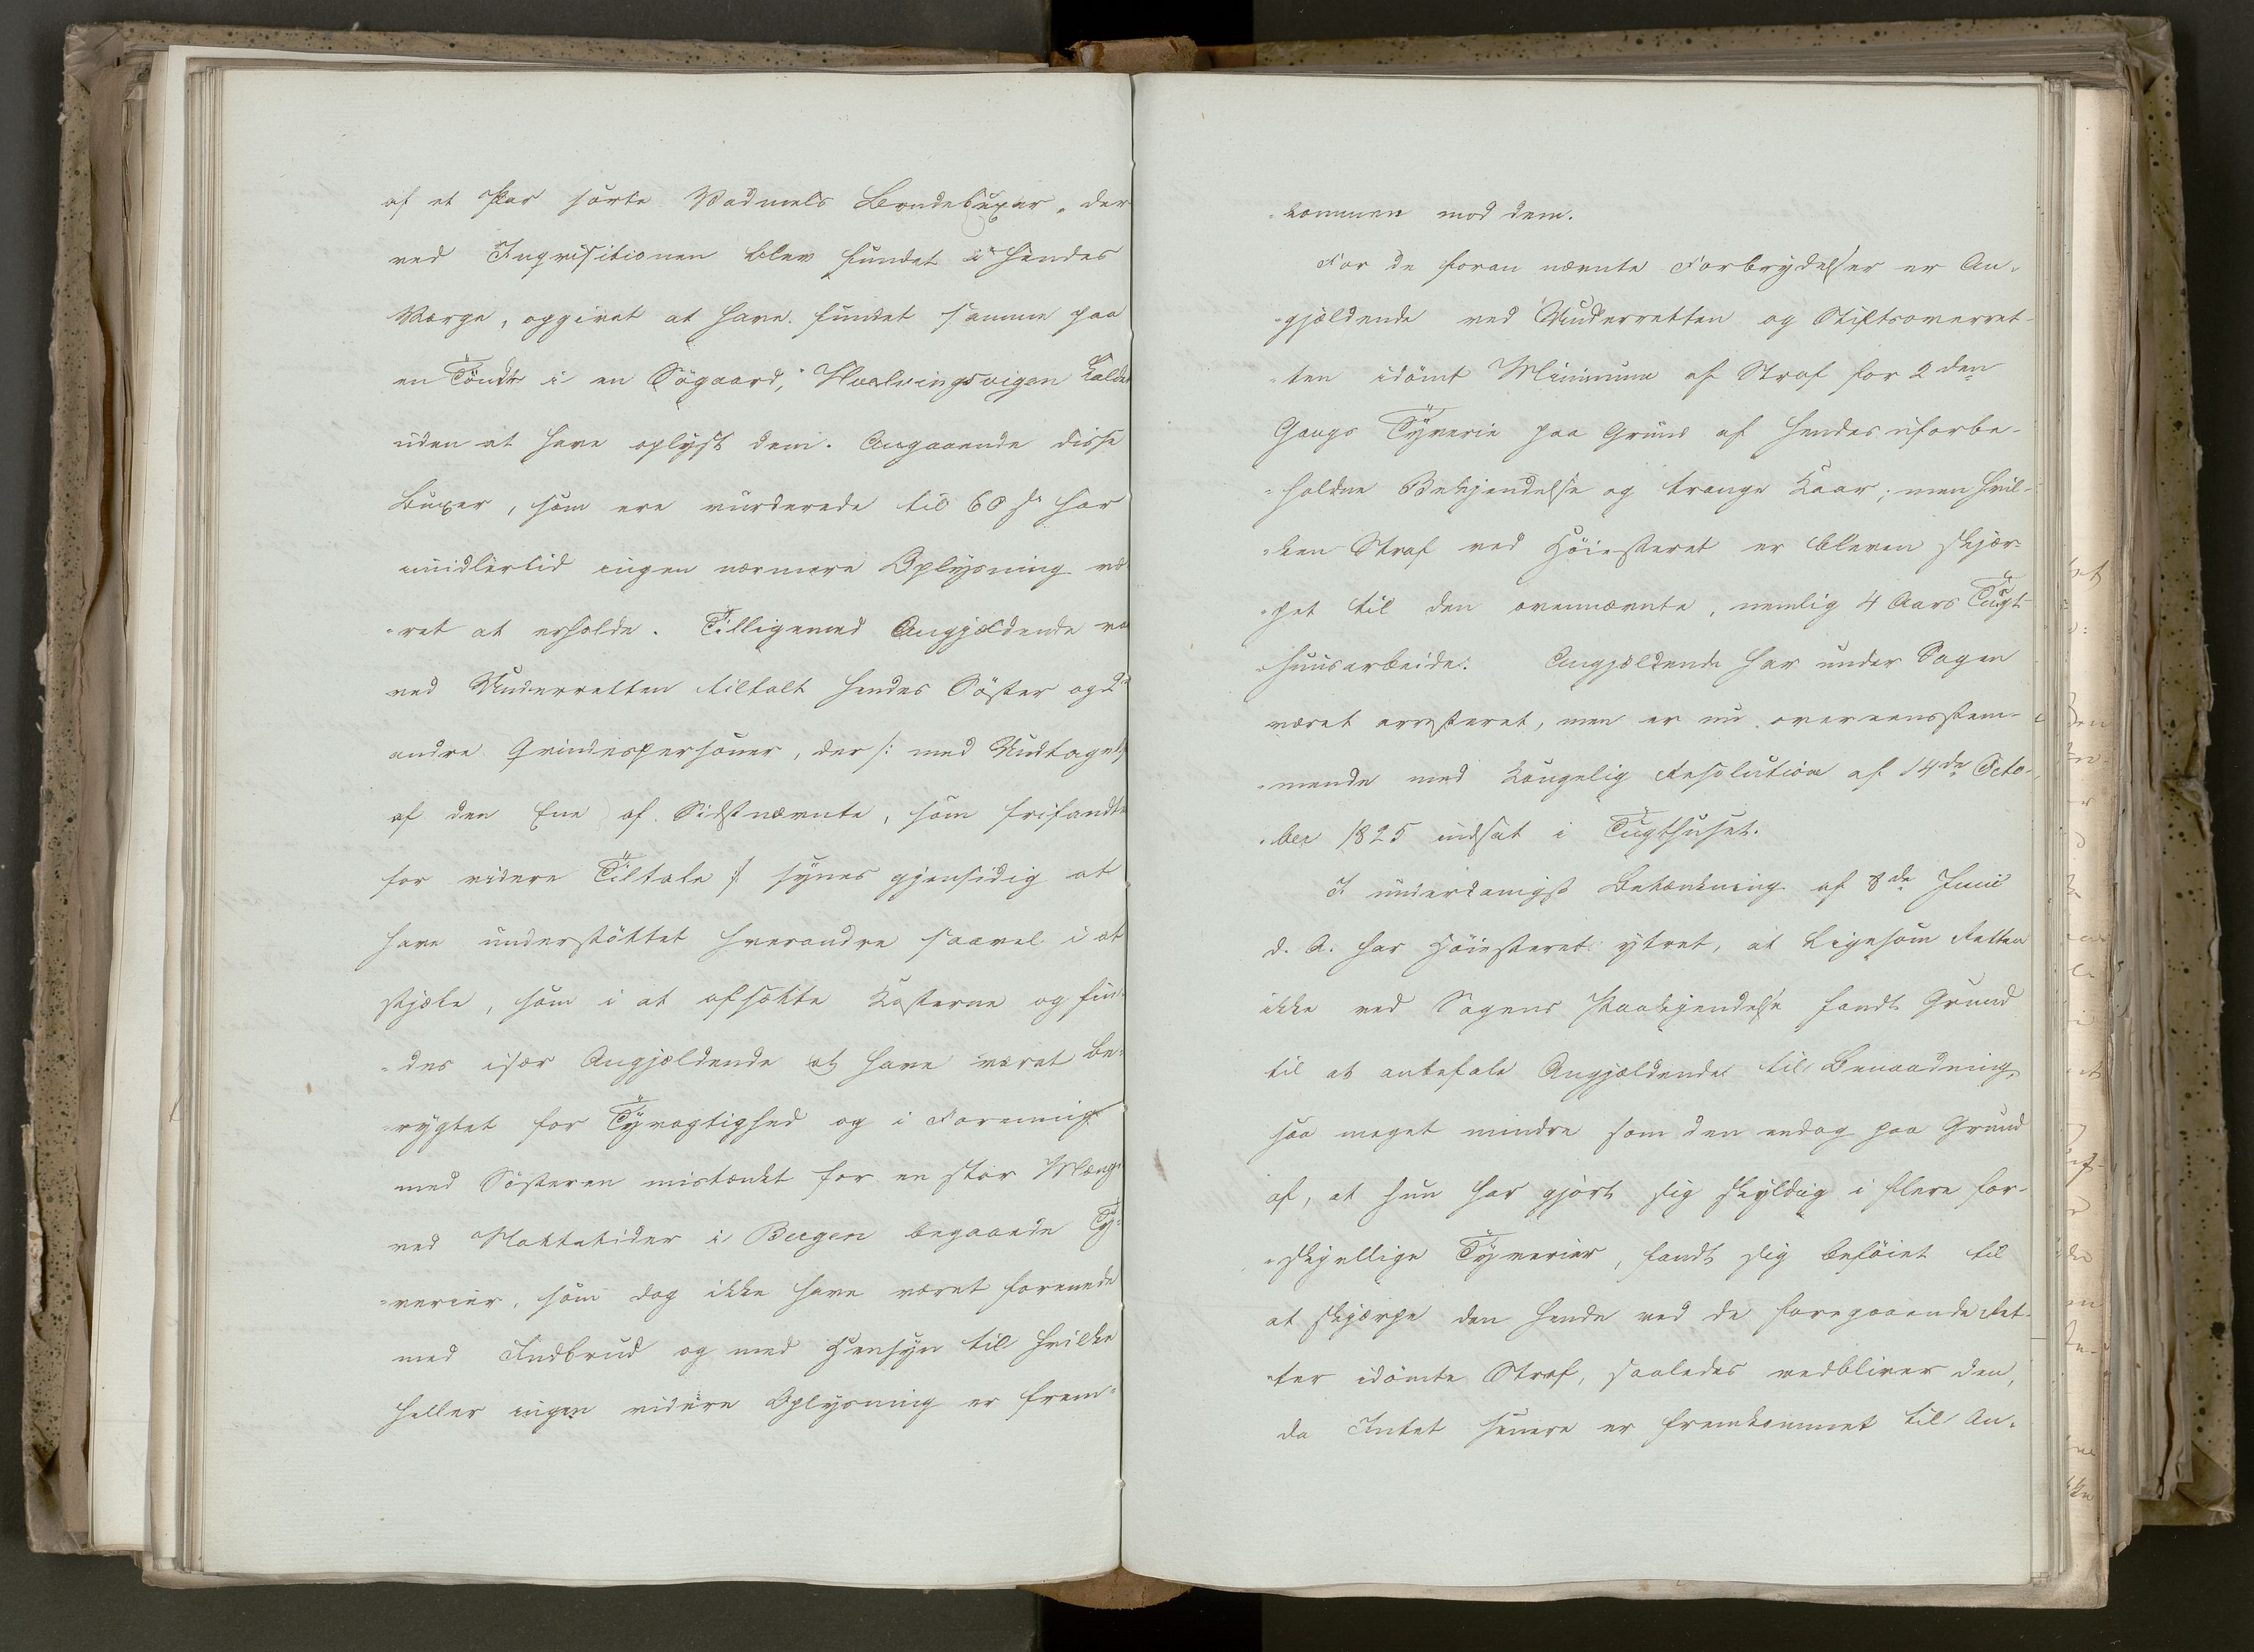 af et Par sorte Vadmels Bondebuxer, der
ved Inqvisitionen blev fundet i hendes
Værge, opgivet at have fundet samme paa
en Tönde i en Søgaard, Hvalvingsvigen kaldet
uden at have oplyst dem. Angaaende disse
Buxer, som ere vurderede til 60 s har
imidlertid ingen nærmere Oplysning væ-
-ret at erholde. Tilligemed Angjældende va
ved Underretten tiltalt hendes Söster og 2
andre Qvindespersoner, der /: med Undtagels
af den Ene af Sidstnævnte, som frifandtes
for videre Tiltale :/ synes gjensidig at
have understöttet hverandre saavel i at
stjæle, som i at afsætte Kosterne og fin-
-des især Angjældende at have været be-
-rygtet for Tyvagtighed og i Forening
med Sösteren mistænkt for en stor Mængde
ved Nattetider i Bergen begaaede Ty-
-verier, som dog ikke have været forenede
med Indbrud og med Hensyn til hvilke
heller ingen videre Oplysning er frem-
-kommen mod dem.
For de foran nævnte Forbrydelser er An-
-gjældende ved Underretten og Stiftsoverret-
-ten idömt Minimum af Straf for 2den
Gangs Tyverie paa Grund af hendes uforbe-
-holdne Bekjendelse og trange Kaar; men hvil-
-ken Straf ved Höiesteret er bleven skjær-
-pet til den ovennævnte, nemlig 4 Aars Tugt-
-huusarbeide. Angjældende har under Sagen
været arresteret, men er nu overeensstem-
-mende med Kongelig Resolution af 14de Octo-
-ber 1825 indsat i Tugthuset.
I underdanigst Betænkning af 8de Junii
d. A. har Höiesteret ytret, at ligesom Retten
ikke ved Sagens Paakjendelse fandt Grund
til at anbefale Angjældende til Benaadning,
saa meget mindre som den endog paa Grund
af, at hun har gjort sig skyldig i flere for-
-skjellige Tyverier, fandt sig beföiet til
at skjærpe den hende ved de foregaaende Ret-
-ter idömte Straf, saaledes vedbliver den,
da Intet senere er fremkommet til An-